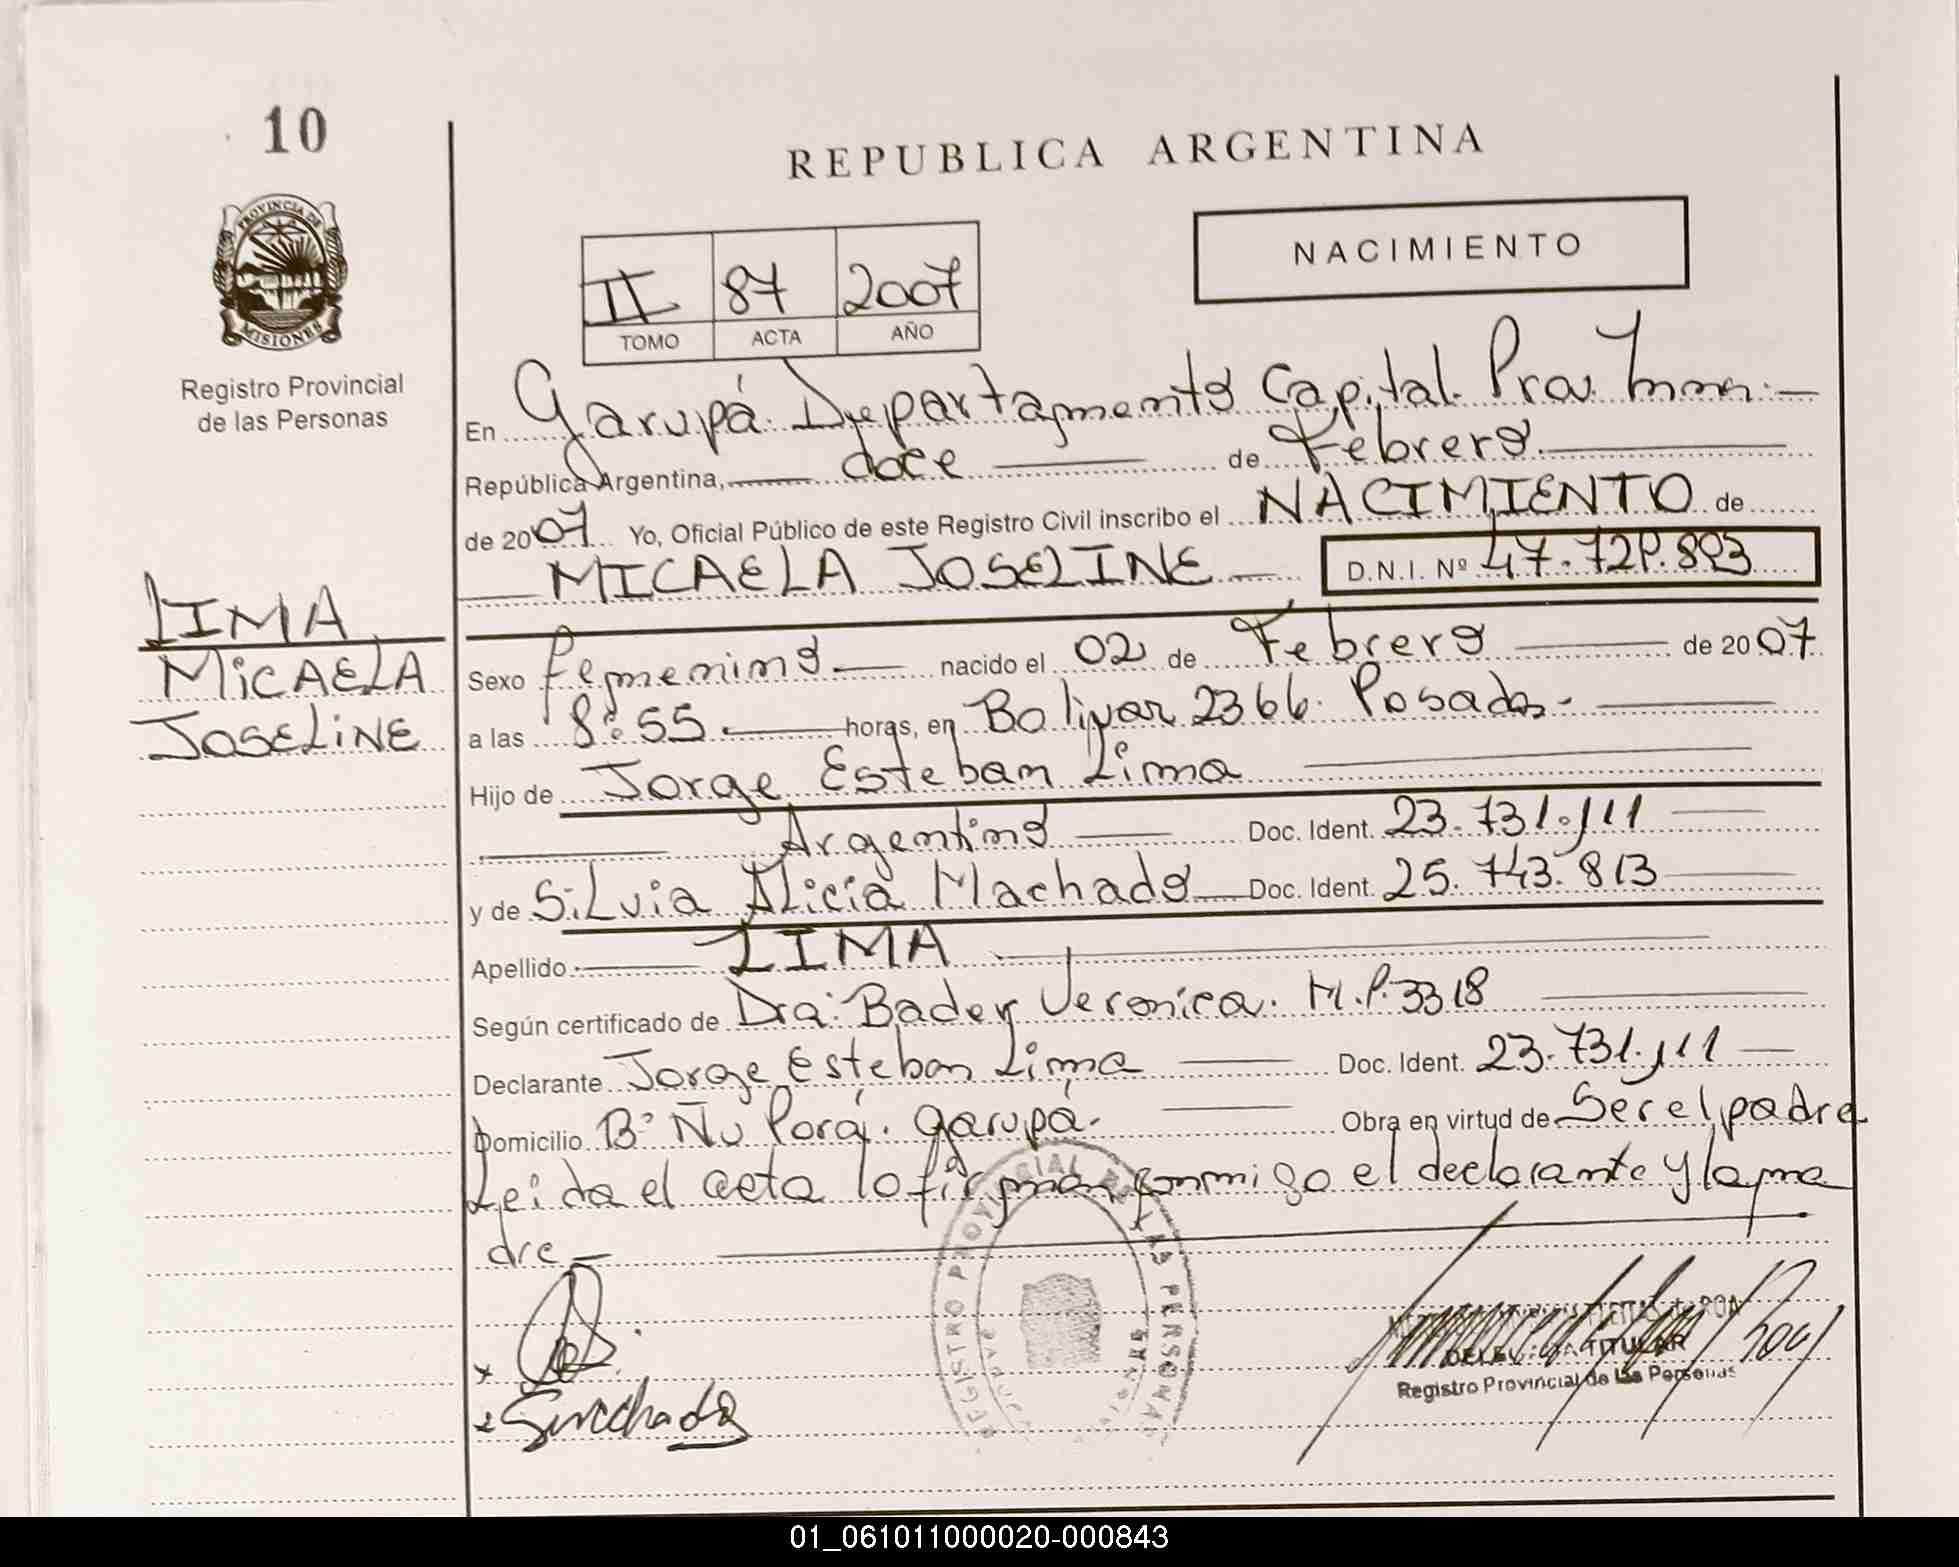 10
PROVINCIA DE
MISIONES
Registro Provincial
de las Personas
LIMA
MICAELA
JOSELINE
REPUBLICA ARGENTINA
NACIMIENTO
II 87 2007
TOMO ACTA AÑO
En Garupá Departamento Capital. Prov. Mnes.
República Argentina, doce de Febrero
de 2007 Yo, Oficial Público de este Registro Civil inscribo el NACIMIENTO de
MICAELA JOSELINE D.N.I. Nº 47.729.893
Sexo femenino nacido el 02 de Febrero de 2007
a las 8:55 horas, en Bolivar 2366. Posadas.
Hijo de Jorge Esteban Lima
Argentino Doc. Ident. 23.731.111
y de Silvia Alicia Machado Doc. Ident. 25.743.813
Apellido LIMA
Según certificado de Dra: Bader Veronica. M.P. 3318
Declarante Jorge Esteban Lima Doc. Ident. 23.731.111
Domicilio Bº Ñu Porá. Garupá. Obra en virtud de Ser el padre
Leida el acta lo firman conmigo el declarante y la ma
dre
REGISTRO PROVINCIAL DE LAS PERSONAS
Smachado
TITULAR
Registro Provincial de las Personas
01_061011000020-000843